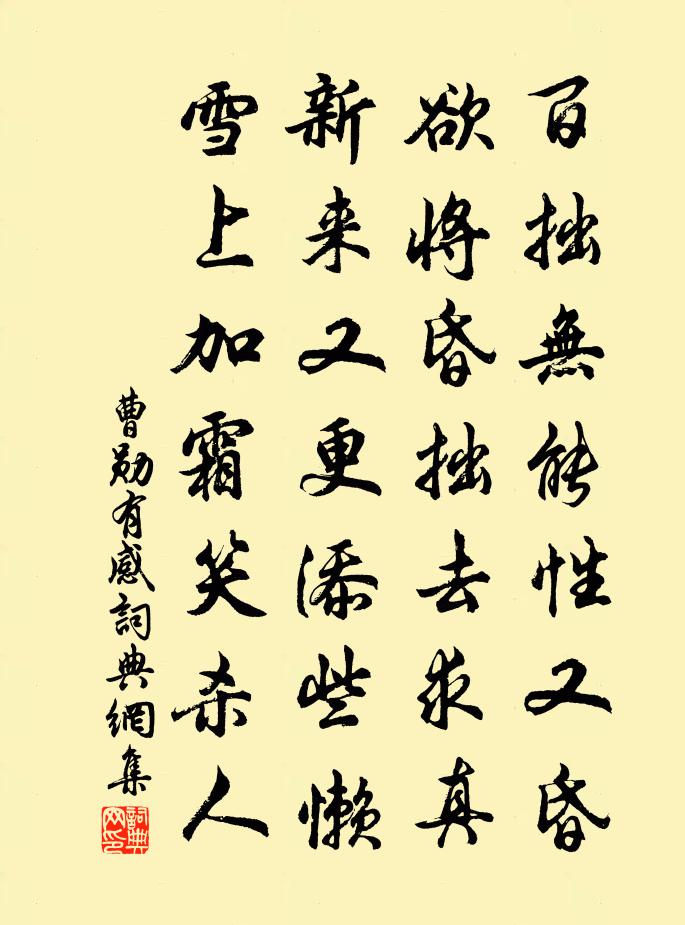 百拙無能性又昏
欲将昏拙去求真
新来又更添些懒
雪上加霜笑杀人
曹勋有感詞典網集
詞典網印